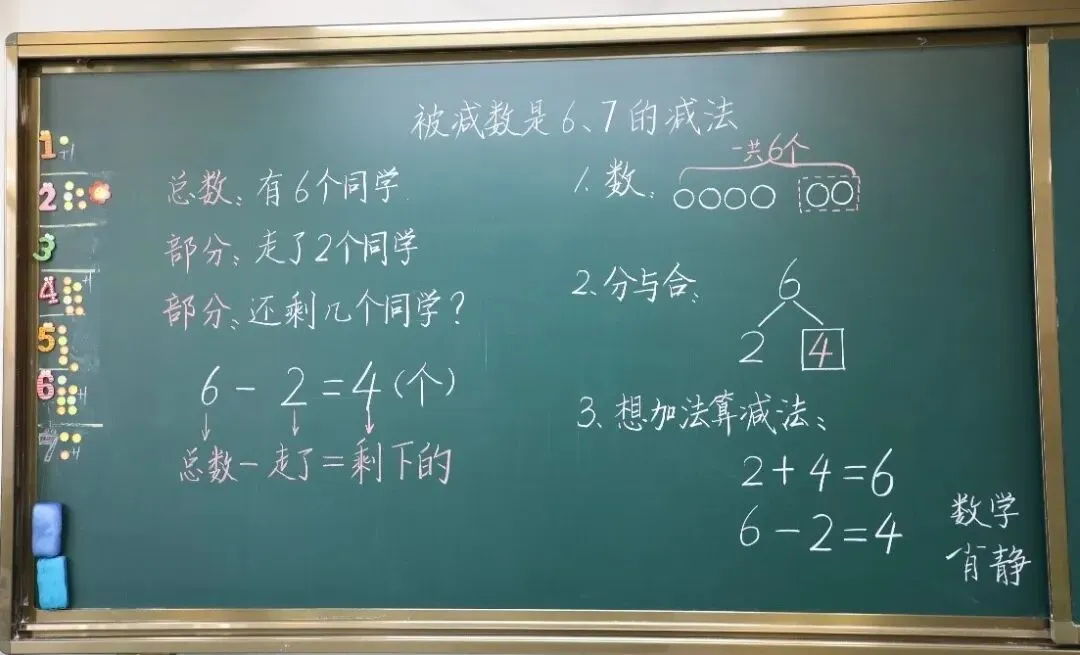 被减数是6、7的减法
1
+1
2
3
4
+1
5
6
+1
7
+1
总数：有6个同学
部分：走了2个同学
部分：还剩几个同学？
6－2=4（个）
总数－走了=剩下的
1.数：
一共6个
2.分与合：
6
2 4
3.想加法算减法：
2+4=6
6－2=4
数学
肖静